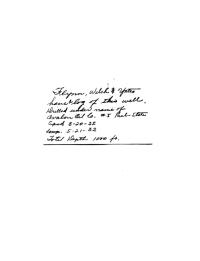 Flynn, Welch & Yates
have log of this well.
Drilled under name of
Avalon Oil Co. #1 Paul-State
Spud 2-20-22
Comp. 5-21-22
Total Depth 1000 ft.